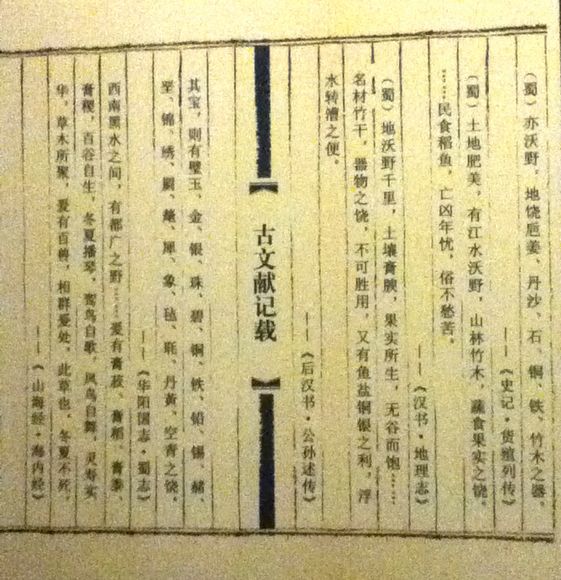 (蜀)亦沃野,地饶卮姜、丹沙、石、铜、铁、竹木之器。
——《史记·货殖列传》
(蜀)土地肥美,有江水沃野,山林竹木,蔬食果实之饶。
……民食稻鱼,亡凶年忧,俗不愁苦。
——《汉书·地理志》
(蜀)地沃野千里,土壤膏腴,果实所生,无谷而饱……
名材竹干,器物之饶,不可胜用,又有鱼盐铜银之利,浮
水转漕之便。
——《后汉书·公孙述传》
【古文献记载】
其宝,则有璧玉、金、银、珠、碧、铜、铁、铅、锡、赭、
垩、锦、绣、罽、氂、犀、象、毡、毦、丹黄、空青之饶。
——《华阳国志·蜀志》
西南黑水之间,有都广之野……爰有膏菽、膏稻、膏黍、
膏稷,百谷自生,冬夏播琴。鸾鸟自歌,凤鸟自舞,灵寿实
华,草木所聚,爰有百兽,相群爰处。此草也,冬夏不死。
——《山海经·海内经》